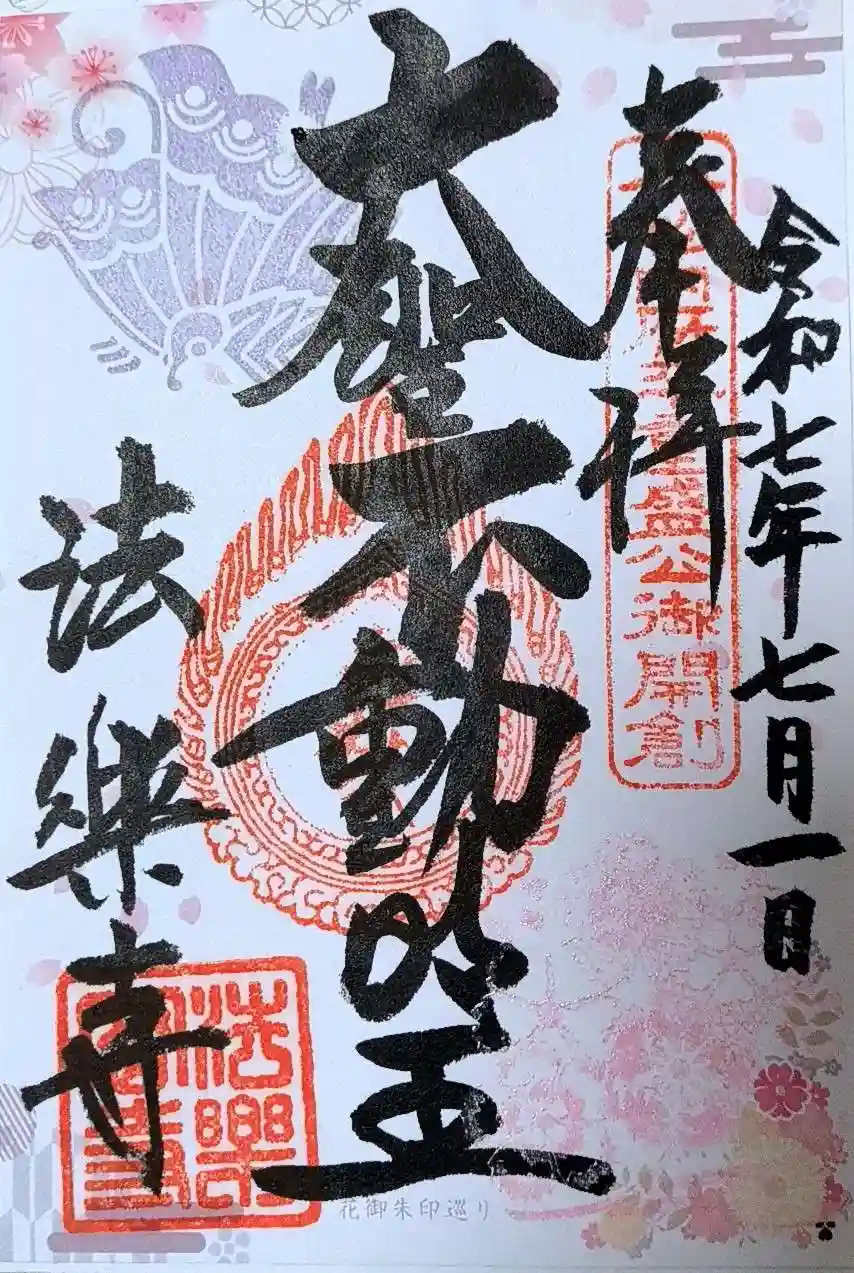 令和七年七月一日
奉拝
盛公御開創
大聖不動明王
法樂寺
法樂寺
花御朱印巡り